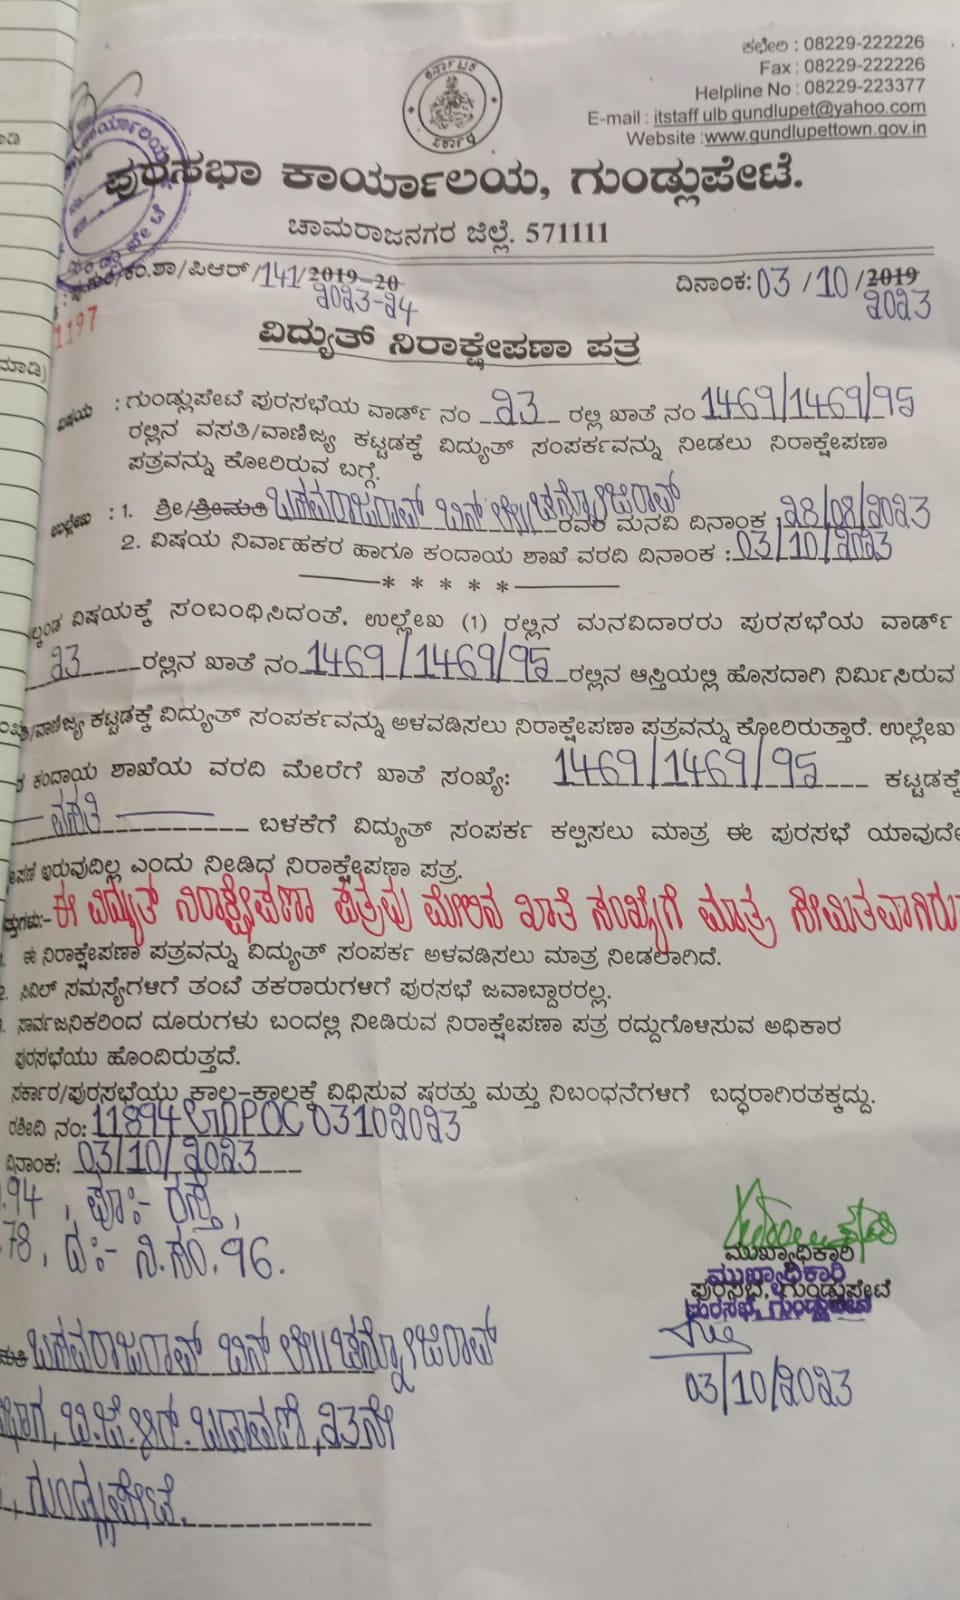 ಕಛೇರಿ : 08229-222226
Fax : 08229-222226
Helpline No : 08229-223377
E-mail : itstaff ulb gundlupet@yahoo.com
Website :www.gundlupettown.gov.in
ಕರ್ನಾಟಕ
ಸರ್ಕಾರ
ಪುರಸಭಾ ಕಾರ್ಯಾಲಯ, ಗುಂಡ್ಲುಪೇಟೆ.
ಚಾಮರಾಜನಗರ ಜಿಲ್ಲೆ. 571111
/ಕಂ.ಶಾ/ಪಿಆರ್/141/2019-20 ದಿನಾಂಕ:03/10/2019
೨೦೨3-೨4 ೨೦೨3
1197
ವಿದ್ಯುತ್ ನಿರಾಕ್ಷೇಪಣಾ ಪತ್ರ
ಮಾಡಿ)
ವಿಷಯ : ಗುಂಡ್ಲುಪೇಟೆ ಪುರಸಭೆಯ ವಾರ್ಡ್ ನಂ ೨3 ರಲ್ಲಿ ಖಾತೆ ನಂ 1469/1469/95
ರಲ್ಲಿನ ವಸತಿ/ವಾಣಿಜ್ಯ ಕಟ್ಟಡಕ್ಕೆ ವಿದ್ಯುತ್ ಸಂಪರ್ಕವನ್ನು ನೀಡಲು ನಿರಾಕ್ಷೇಪಣಾ
ಪತ್ರವನ್ನು ಕೋರಿರುವ ಬಗ್ಗೆ.
ಉಲ್ಲೇಖ : 1. ಶ್ರೀ/ಶ್ರೀಮತಿ ಬಸವರಾಜರಾವ್ ಬಿನ್ ಲೇ|| ಚನ್ನೋಜಿರಾವ್ ರವರ ಮನವಿ ದಿನಾಂಕ : ೨8/08/೨೦೨3
2. ವಿಷಯ ನಿರ್ವಾಹಕರ ಹಾಗೂ ಕಂದಾಯ ಶಾಖೆ ವರದಿ ದಿನಾಂಕ : 03/10/೨೦೨3
* * * * *
ವಿಷಯಕ್ಕೆ ಸಂಬಂಧಿಸಿದಂತೆ, ಉಲ್ಲೇಖ (1) ರಲ್ಲಿನ ಮನವಿದಾರರು ಪುರಸಭೆಯ ವಾರ್ಡ್
೨3 ರಲ್ಲಿನ ಖಾತೆ ನಂ 1469/1469/95 ರಲ್ಲಿನ ಆಸ್ತಿಯಲ್ಲಿ ಹೊಸದಾಗಿ ನಿರ್ಮಿಸಿರುವ
/ವಾಣಿಜ್ಯ ಕಟ್ಟಡಕ್ಕೆ ವಿದ್ಯುತ್ ಸಂಪರ್ಕವನ್ನು ಅಳವಡಿಸಲು ನಿರಾಕ್ಷೇಪಣಾ ಪತ್ರವನ್ನು ಕೋರಿರುತ್ತಾರೆ. ಉಲ್ಲೇಖ
ಕಂದಾಯ ಶಾಖೆಯ ವರದಿ ಮೇರೆಗೆ ಖಾತೆ ಸಂಖ್ಯೆ: 1469/1469/95 ಕಟ್ಟಡಕ್ಕೆ
ವಸತಿ ಬಳಕೆಗೆ ವಿದ್ಯುತ್ ಸಂಪರ್ಕ ಕಲ್ಪಿಸಲು ಮಾತ್ರ ಈ ಪುರಸಭೆ ಯಾವುದೇ
ಇರುವುದಿಲ್ಲ ಎಂದು ನೀಡಿದ ನಿರಾಕ್ಷೇಪಣಾ ಪತ್ರ.
ಈ ವಿದ್ಯುತ್ ನಿರಾಕ್ಷೇಪಣಾ ಪತ್ರವು ಮೇಲಿನ ಖಾತೆ ಸಂಖ್ಯೆಗೆ ಮಾತ್ರ ಸೀಮಿತವಾಗಿರು
ಈ ನಿರಾಕ್ಷೇಪಣಾ ಪತ್ರವನ್ನು ವಿದ್ಯುತ್ ಸಂಪರ್ಕ ಅಳವಡಿಸಲು ಮಾತ್ರ ನೀಡಲಾಗಿದೆ.
2. ಸಿವಿಲ್ ಸಮಸ್ಯೆಗಳಿಗೆ ತಂಟೆ ತಕರಾರುಗಳಿಗೆ ಪುರಸಭೆ ಜವಾಬ್ದಾರರಲ್ಲ.
ಸಾರ್ವಜನಿಕರಿಂದ ದೂರುಗಳು ಬಂದಲ್ಲಿ ನೀಡಿರುವ ನಿರಾಕ್ಷೇಪಣಾ ಪತ್ರ ರದ್ದುಗೊಳಿಸುವ ಅಧಿಕಾರ
ಪುರಸಭೆಯು ಹೊಂದಿರುತ್ತದೆ.
ಸರ್ಕಾರ/ಪುರಸಭೆಯು ಕಾಲ-ಕಾಲಕ್ಕೆ ವಿಧಿಸುವ ಷರತ್ತು ಮತ್ತು ನಿಬಂಧನೆಗಳಿಗೆ ಬದ್ಧರಾಗಿರತಕ್ಕದ್ದು.
ರಶೀದಿ ನಂ: 11894GDPOC0310೨೦೨3
ದಿನಾಂಕ: 03/10/೨೦೨3
.94, ಪೂ:- ರಸ್ತೆ,
.78, ದ:- ನಿ.ಸಂ. 96.
ಮುಖ್ಯಾಧಿಕಾರಿ
ಮುಖ್ಯಾಧಿಕಾರಿ
ಪುರಸಭೆ, ಗುಂಡ್ಲುಪೇಟೆ
ಪುರಸಭೆ, ಗುಂಡ್ಲುಪೇಟೆ
03/10/೨೦೨3
ಬಸವರಾಜರಾವ್ ಬಿನ್ ಲೇ|| ಚನ್ನೋಜಿರಾವ್
ಬಡಾವಣೆ, ೨3ನೇ
ಗುಂಡ್ಲುಪೇಟೆ.